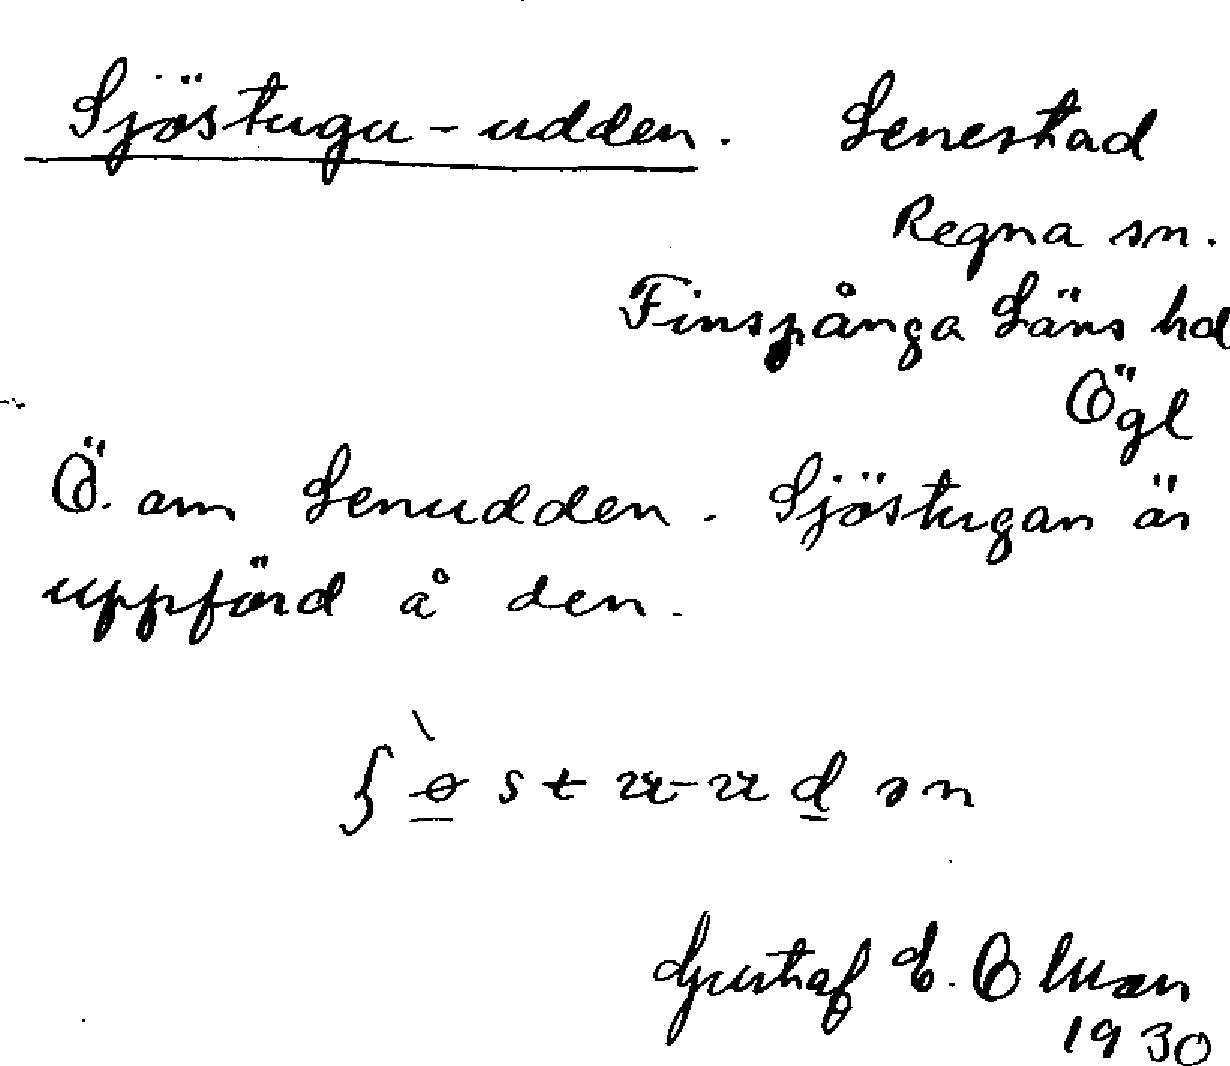 Sjöstugu-udden. Lenestad
Regna sn.
Finspånga Läns hd
Ögl
Ö. om Lenudden. Sjöstugan är
uppförd å den.
Gustaf E.
1930